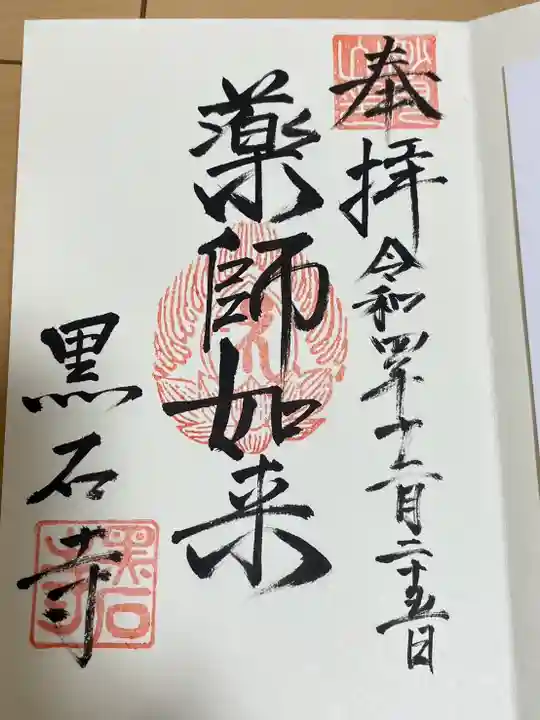 奉拝 令和四年十二月二十五日
薬師如来
黒石寺
黒石寺